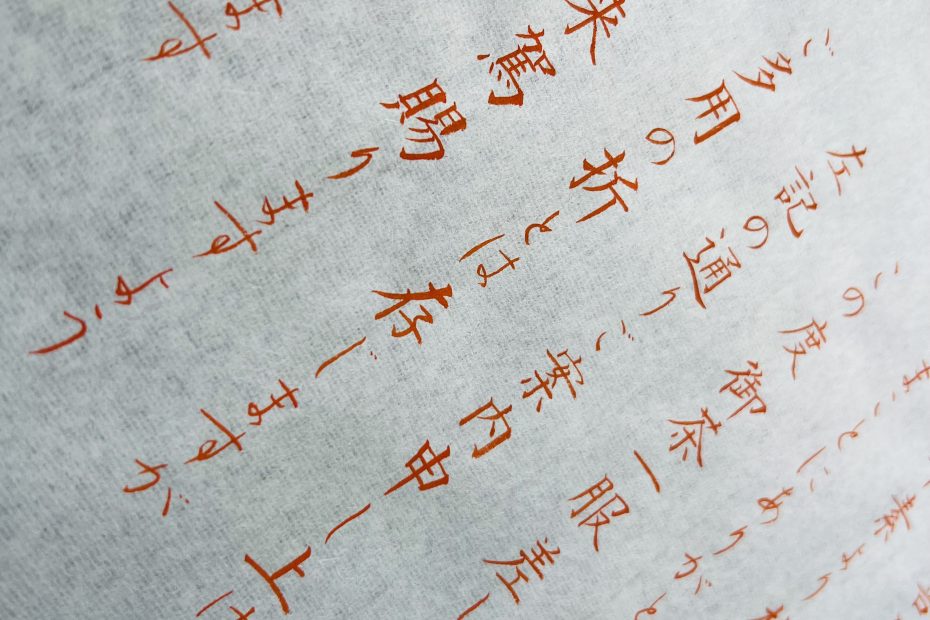 素より
まことにありがと
この度御茶一服差し
左記の通りご案内申し上げ
ご多用の折とは存じますが
来駕賜りますよう
ます